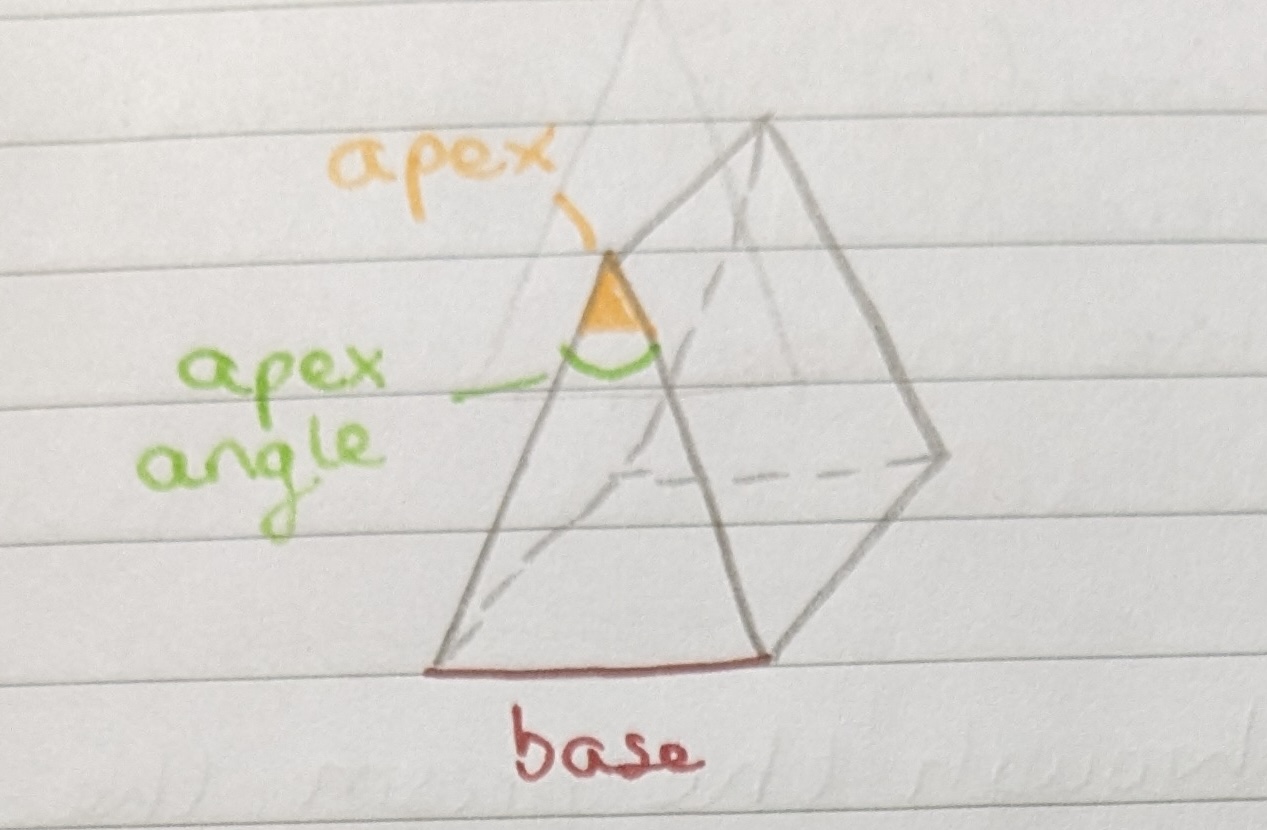 apex
apex
angle
base